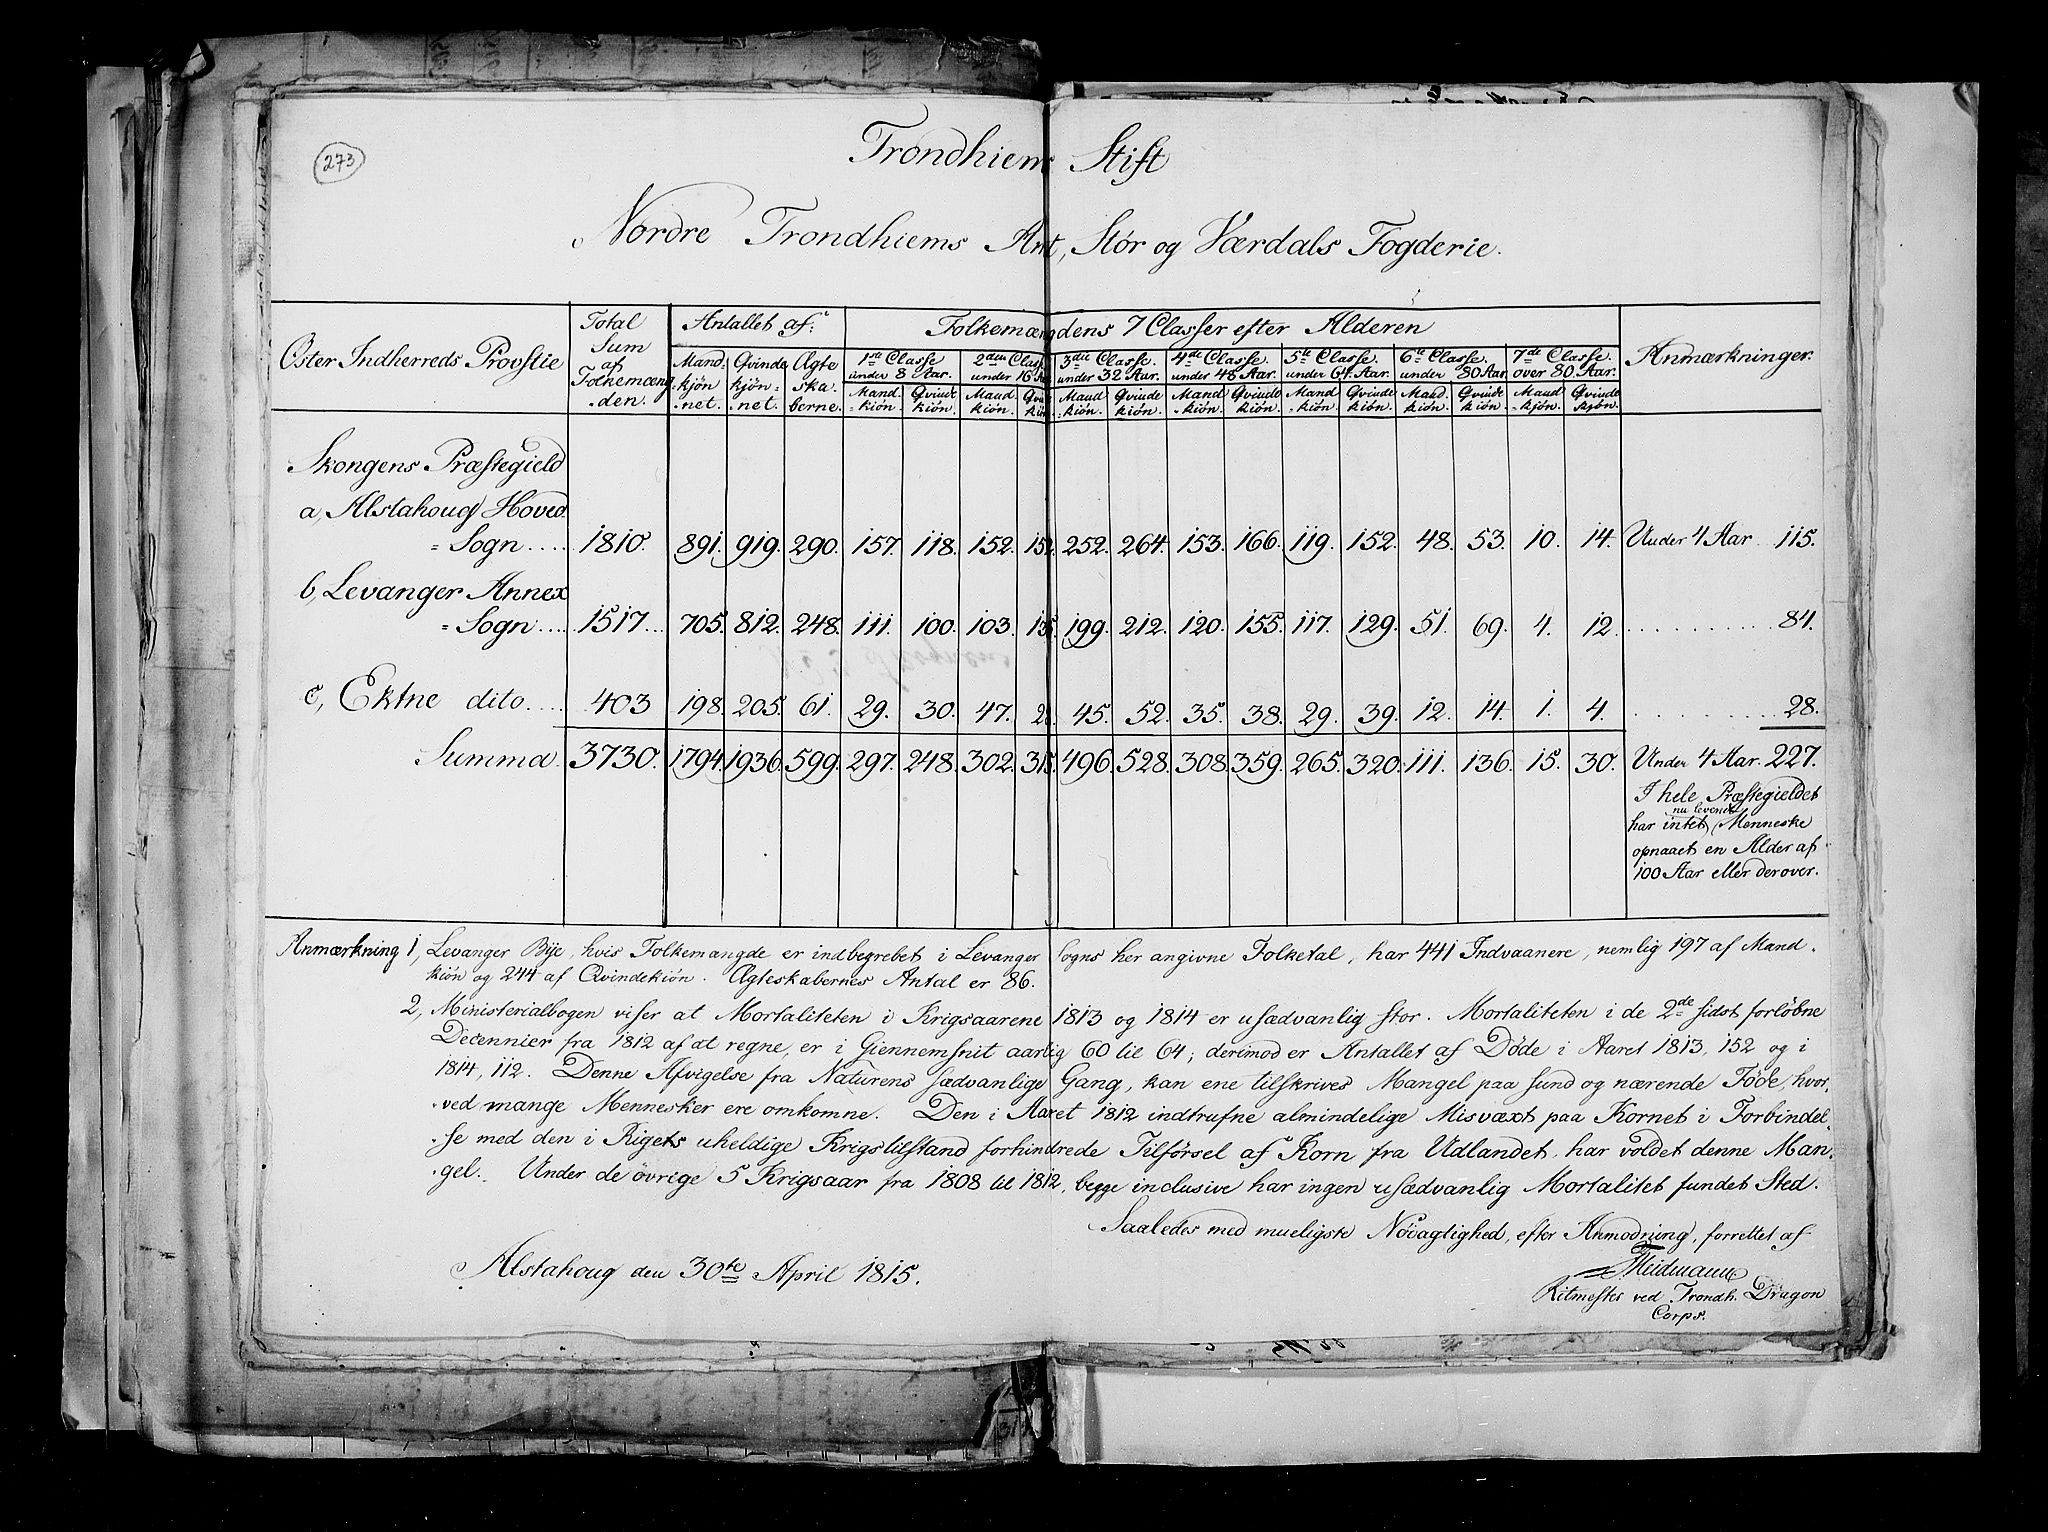 273
Trondhiems Stift
Nordre Trondhiems Amt, Stör og Værdals Fogderie.
Öster Indherreds Provstie
Total Sum af Folkemæng-den.
Antallet af:
Mand-kjön-net.
Qvinde kjön-net.
Ægte ska-berne.
Folkemængdens 7 Classer efter Alderen
1ste Classe under 8 Aar.
2den Classe under 16 Aar
3die Classe. under 32 Aar.
4de Classe. under 48 Aar.
5te Classe. under 64 Aar.
6te Classe. under 80 Aar.
7de Classe. over 80 Aar.
Mand-kiön. Qvinde kiön. Mand kiön. Qvinde kiön. Mand-kiön. Qvinde kiön. Mand-kiön. Qvinde kiön. Mand-kiön. Qvinde kiön. Mand-kiön. Qvinde kiön. Mand-kjön. Qvinde kjön.
Anmærkninger.
Skongens Præstegield
a, Alstahoug Hoved
=Sogn.... 1810. 891. 919. 290. 157. 118. 152. 152. 252. 264. 153. 166. 119. 152. 48. 53. 10. 14. Under 4 Aar 115.
b, Levanger Annex
=Sogn.... 1517... 705. 812. 248. 111. 100. 103. 135. 199. 212. 120. 155. 117. 129. 51. 69. 4. 12. .......... 84.
c, Ektne dito.... 403 198. 205. 61. 29. 30. 47. 28. 45. 52. 35. 38. 29. 39. 12. 14. 1. 4. .......... 28.
Summa. 3730. 1794. 1936. 599. 297. 248. 302. 315. 496. 528. 308. 359. 265. 320. 111. 136. 15. 30. Under 4 Aar. 227.
I hele Præstegieldet
nu levende
har intet Menneske
opnaaet en Alder af
100 Aar eller derover.
Anmærkning 1, Levanger Bÿe, hvis Folkemængde er indbegrebet i Levanger Sogns her angivne Folketal, har 441 Indvaanere, nemlig 197 af Mand.
kiön og 244 af Qvindekiön. Ægteskabernes Antal er 86.
2, Ministerialbogen viser at Mortaliteten i Krigsaarene 1813 og 1814 er usædvanlig stor. Mortaliteten i de 2de sidst forløbne
Decennier fra 1812 af at regne, er i Giennemsnit aarlig 60 til 64; derimod er Antallet af Døde i Aaret 1813, 152 og i
1814, 112. Denne Afvigelse fra Naturens sædvanlige Gang, kan ene tilskrives Mangel paa sund og nærende Føde, hvor-
-ved mange Mennesker ere omkomne. Den i Aaret 1812 indtrufne almindelige Misvæxt paa Kornet i Forbindel-
-se med den i Rigets uheldige Krigstilstand forhindrede Tilførsel af Korn fra Udlandet, har voldet denne Man-
-gel. Under de övrige 5 Krigsaar fra 1808 til 1812, begge inclusive har ingen usædvanlig Mortalitet fundet Sted.
Saaledes med mueligste Nöiagtighed, efter Anmodning, forrettet af
Alstahoug den 30te April 1815.
Ritmester ved Trondh. Dragon
Corps.